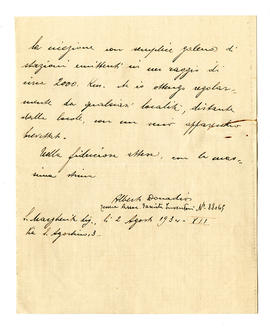 la ricezione con semplice galena di
stazioni emittenti in un raggio di
circa 2000. Km. che io ottengo regolar-
mente da qualsiasi località, distante
dalle locali, con un mio apparecchio
brevettato.
Nella fiduciosa attesa, con la mas-
sima stima
Alberto Donadio
Inventori, N°
S. Margherita Lig., li 2 Agosto 1934-XII
Via S. Agostino, 3